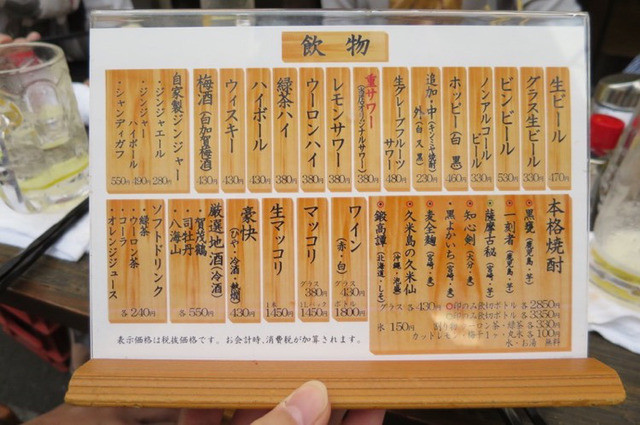 飲物
生ビール 470円
グラス生ビール 330円
ビンビール 530円
ノンアルコールビール 330円
ホッピー(白 黒) 460円
追加・中(キンミヤ焼酎)
外(白 又 黒) 230円
生グレープフルーツサワー 480円
重サワー
(当店オリジナルサワー) 380円
レモンサワー 380円
ウーロンハイ 380円
緑茶ハイ 380円
ハイボール 430円
ウィスキー 430円
梅酒(白加賀梅酒) 430円
自家製ジンジャー
・ジンジャエール 280円
・ジンジャーハイボール 490円
・シャンディガフ 550円
本格焼酎
黒甕(鹿児島・芋)
一刻者(鹿児島・芋)
薩摩古秘(宮崎・芋)
知心剣(大分・麦)
黒よかいち(宮崎・麦)
麦全麹(宮崎・麦)
久米島の久米仙(沖縄・泡盛)
鍛高譚(北海道・しそ)
グラス 各430円
氷 150円
各2850円
各3350円
各3350円
各100円
お湯 無料
ワイン(赤・白)
グラス 430円
ボトル 1800円
マッコリ
グラス 380円
1450円
生マッコリ
1本 1450円
豪快
(ひや・冷酒・熱燗)
430円
厳選地酒(冷酒)
・賀茂鶴
・司牡丹
・八海山
各550円
ソフトドリンク
・緑茶
・ウーロン茶
・コーラ
・オレンジジュース
各240円
表示価格は税抜価格です。お会計時、消費税が加算されます。